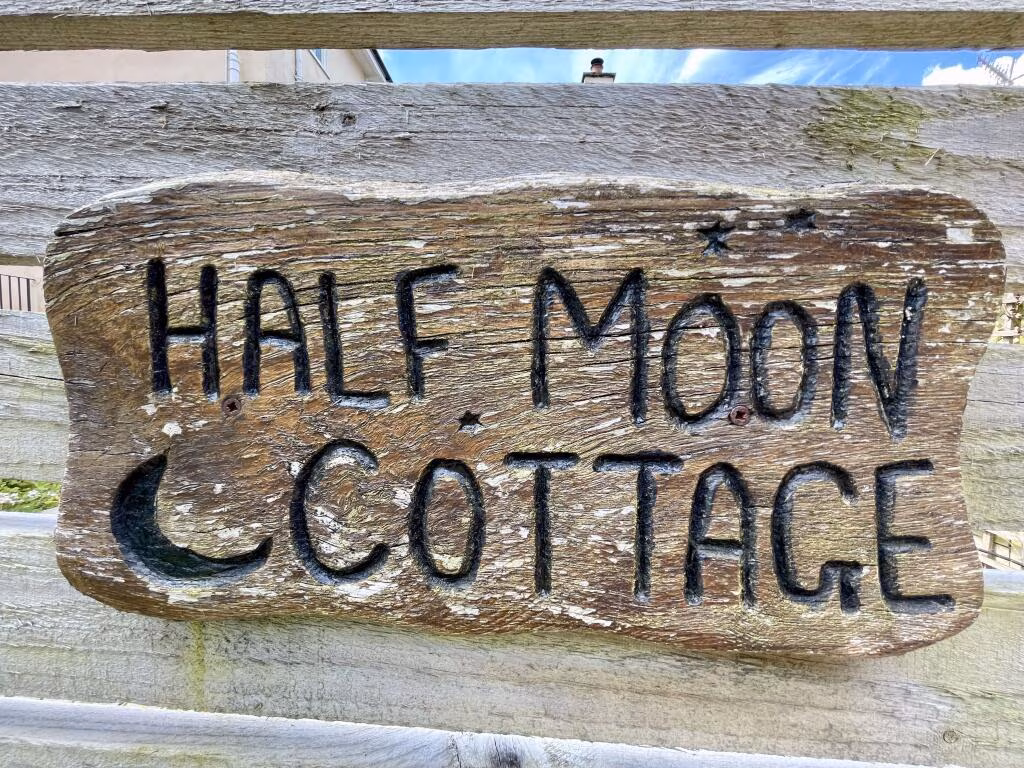 HALF MOON
COTTAGE